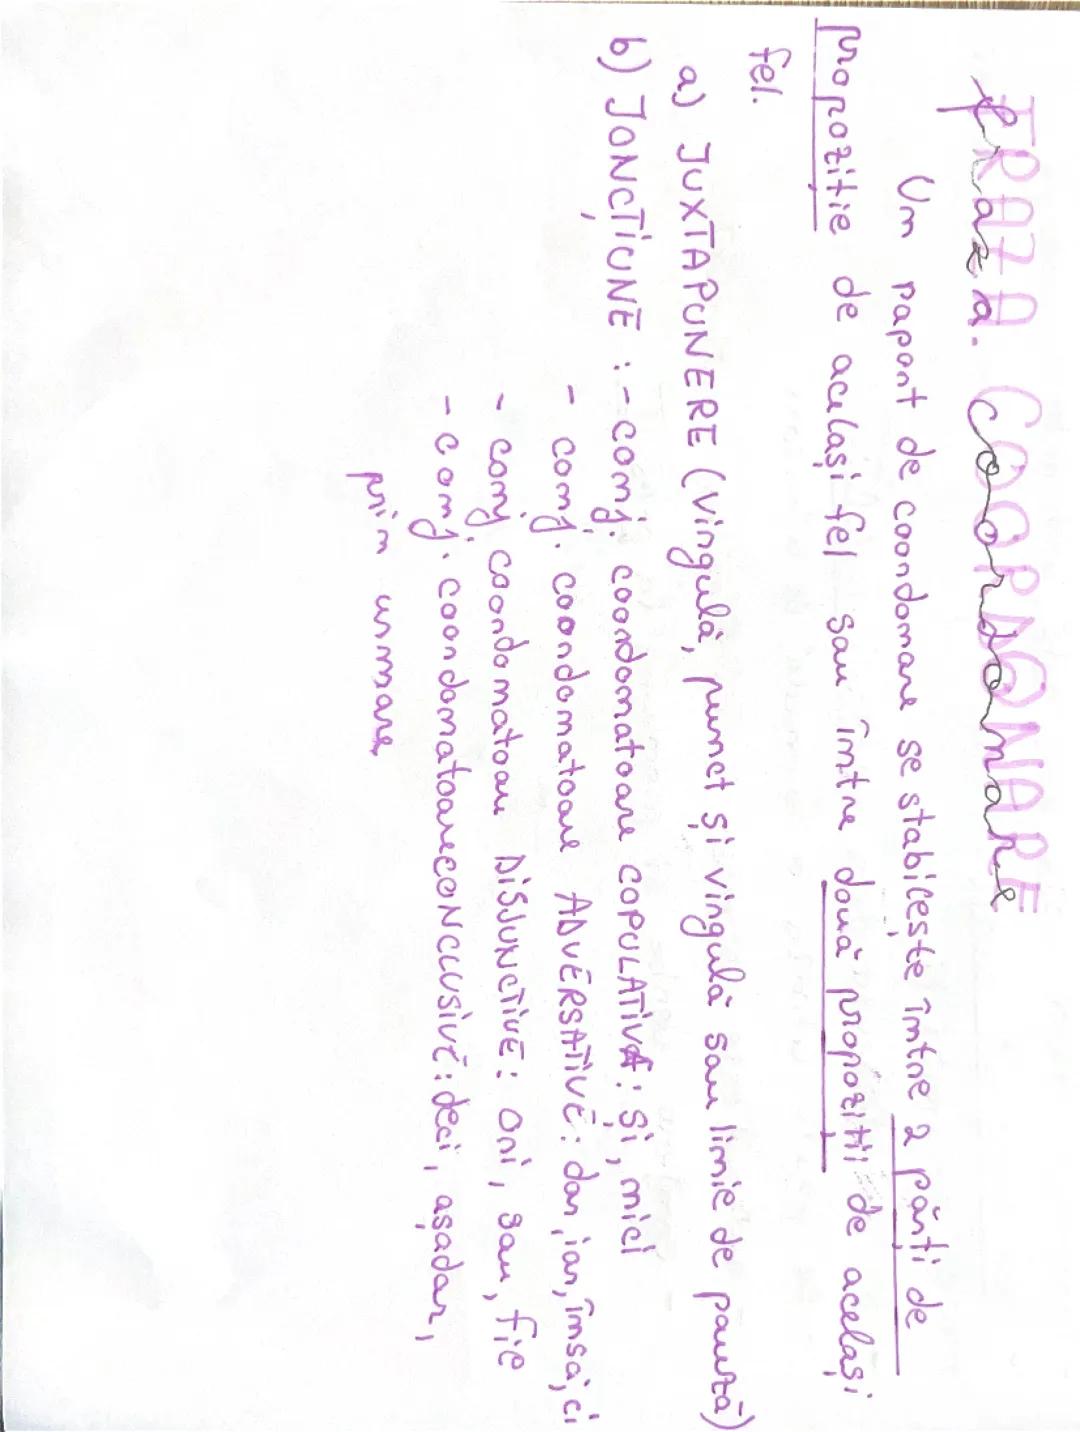 Fraza. Coordonare
Un raport de coordonare se stabilește între 2 părți de
propoziție de același fel sau între două propoziții de același
fel.
a) JUXTAPUNERE (virgulă, punct și virgulă sau linie de pauză)
b) JONCȚIUNE : - conj. coordonatoare COPULATIVE: și, nici
- conj. coordonatoare ADVERSATIVE: dar, iar, însă, ci
- conj. coordonatoare DISJUNCTIVE: ori, sau, fie
- conj. coordonatoare CONCLUSIVE: deci, așadar,
prin urmare